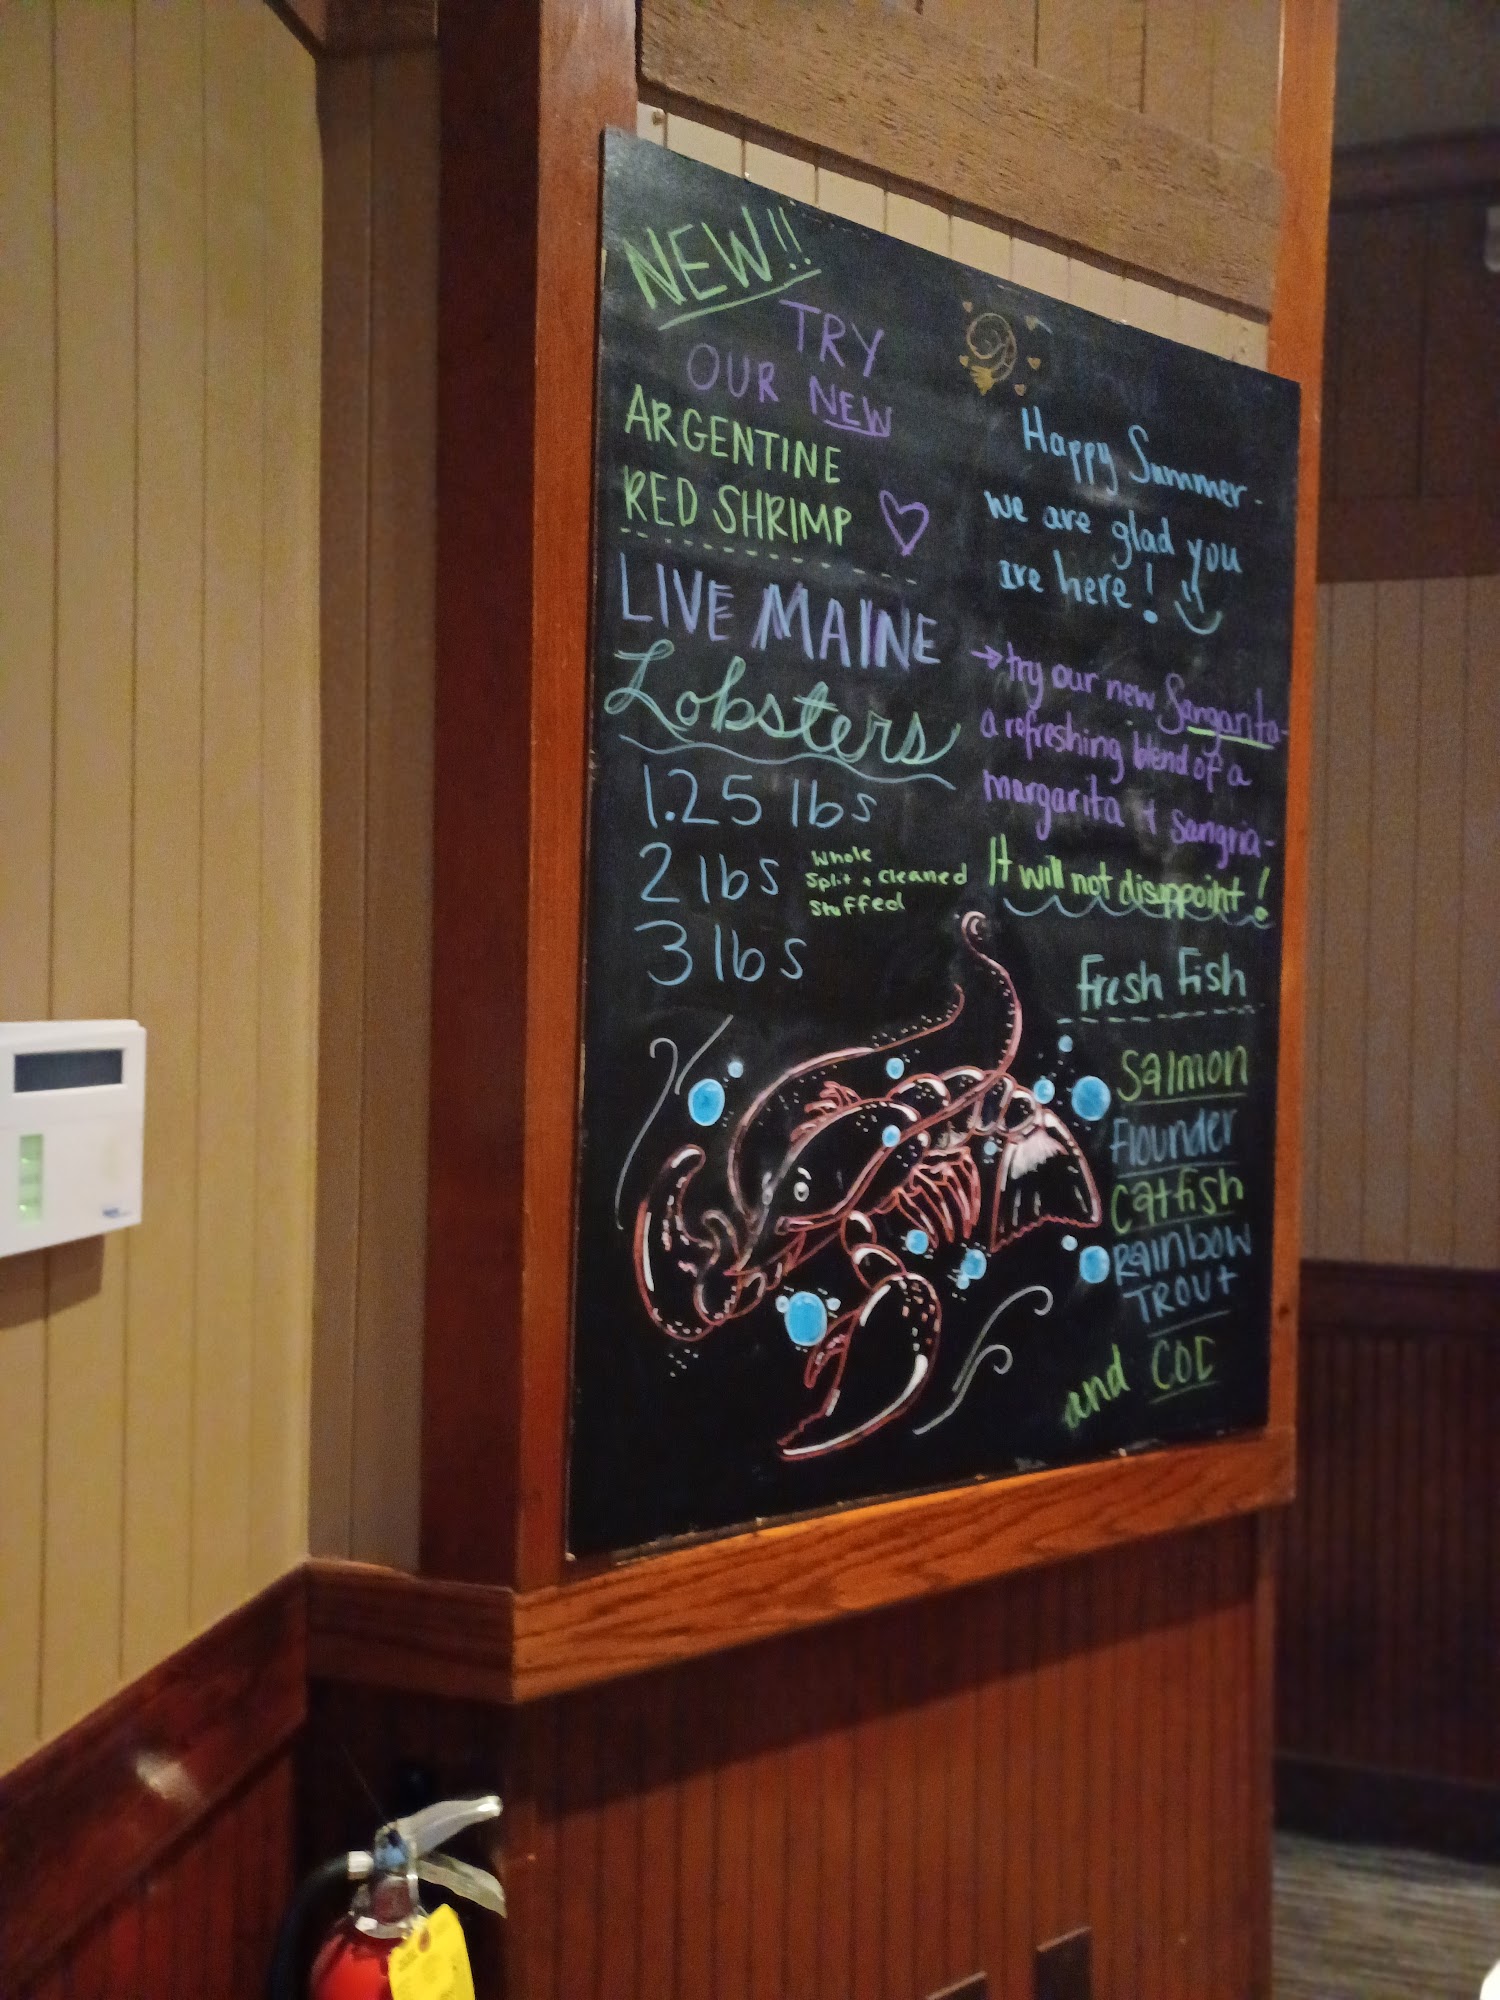 NEW!!
TRY
OUR NEW
ARGENTINE
RED SHRIMP
LIVE MAINE
Lobsters
1.25 lbs
2 lbs
3 lbs
Whole
Split + Cleaned
Stuffed
Happy Summer-
we are glad you
are here!
→try our new Sangarita-
a refreshing blend of a
margarita + sangria-
It will not disappoint!
Fresh Fish
Salmon
Flounder
Catfish
Rainbow
Trout
and COD